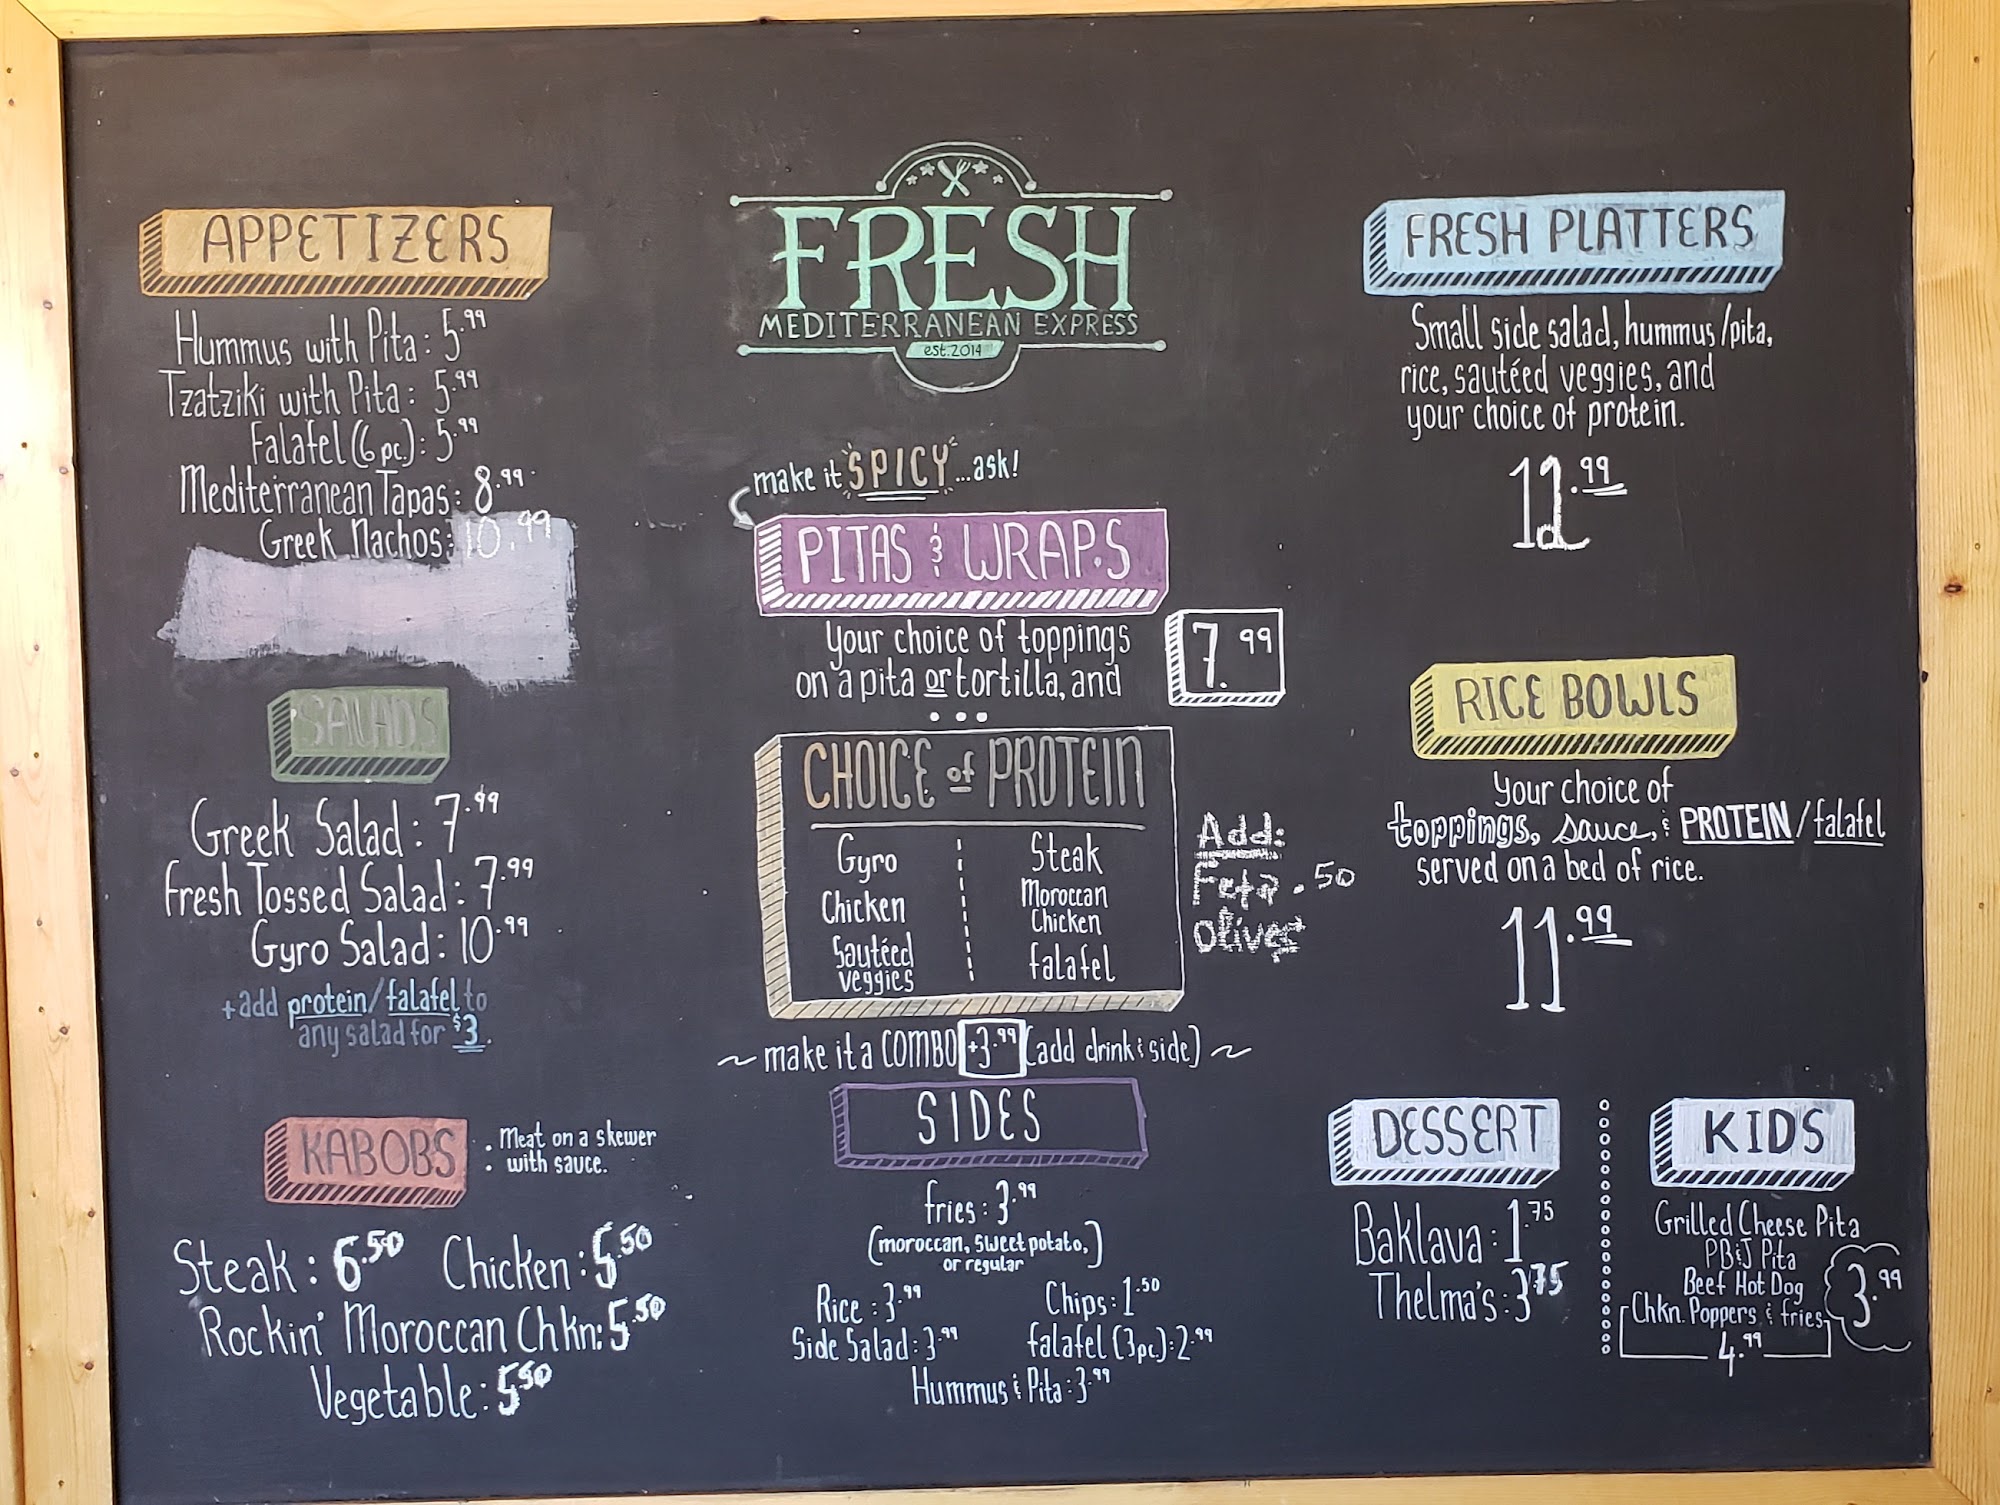 FRESH
MEDITERRANEAN EXPRESS
est. 2014
APPETIZERS
Hummus with Pita: 5.99
Tzatziki with Pita: 5.99
Falafel (6 pc.): 5.99
Mediterranean Tapas: 8.99
Greek Nachos: 10.99
SALADS
Greek Salad: 7.99
Fresh Tossed Salad: 7.99
Gyro Salad: 10.99
+add protein/falafel to
any salad for $3.
KABOBS
: Meat on a skewer
: with sauce.
Steak: 6.50 Chicken: 5.50
Rockin' Moroccan Chkn: 5.50
Vegetable: 5.50
make it SPICY...ask!
PITAS & WRAPS
your choice of toppings
on a pita or tortilla, and
...
7.99
CHOICE of PROTEIN
Gyro
Chicken
Sautéed
veggies
Steak
Moroccan
Chicken
falafel
Add:
Feta .50
olives
~ make it a COMBO +3.99 (add drink & side) ~
SIDES
fries: 3.99
(moroccan, sweet potato,)
or regular
Rice: 3.99 Chips: 1.50
Side Salad: 3.99 falafel (3pc.): 2.99
Hummus & Pita: 3.99
FRESH PLATTERS
Small side salad, hummus/pita,
rice, sautéed veggies, and
your choice of protein.
12.99
RICE BOWLS
your choice of
toppings, sauce, & PROTEIN/falafel
served on a bed of rice.
11.99
DESSERT
Baklava: 1.75
Thelma's: 3.75
KIDS
Grilled Cheese Pita
PB&J Pita
Beef Hot Dog
Chkn. Poppers & fries
3.99
4.99